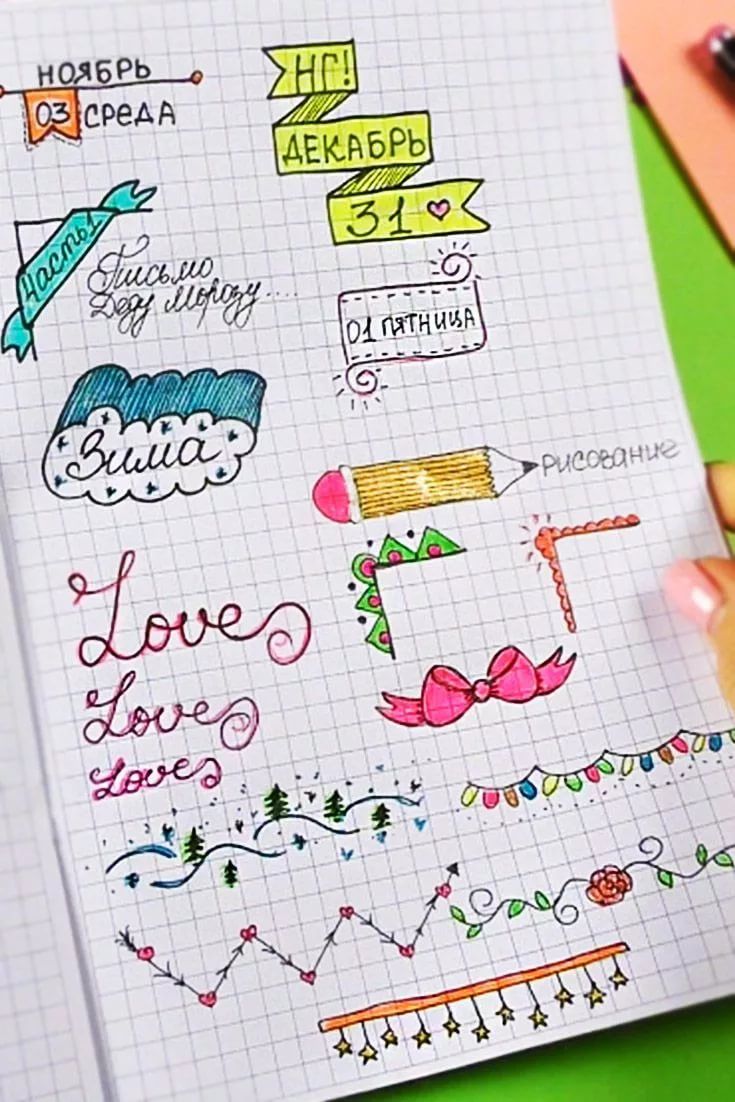 НОЯБРЬ
03 СРЕДА
НГ!
ДЕКАБРЬ
31
Часть 1
Письмо
Деду Морозу....
01 ПЯТНИЦА
Зима
РИСОВАНИЕ
Love
Love
Love